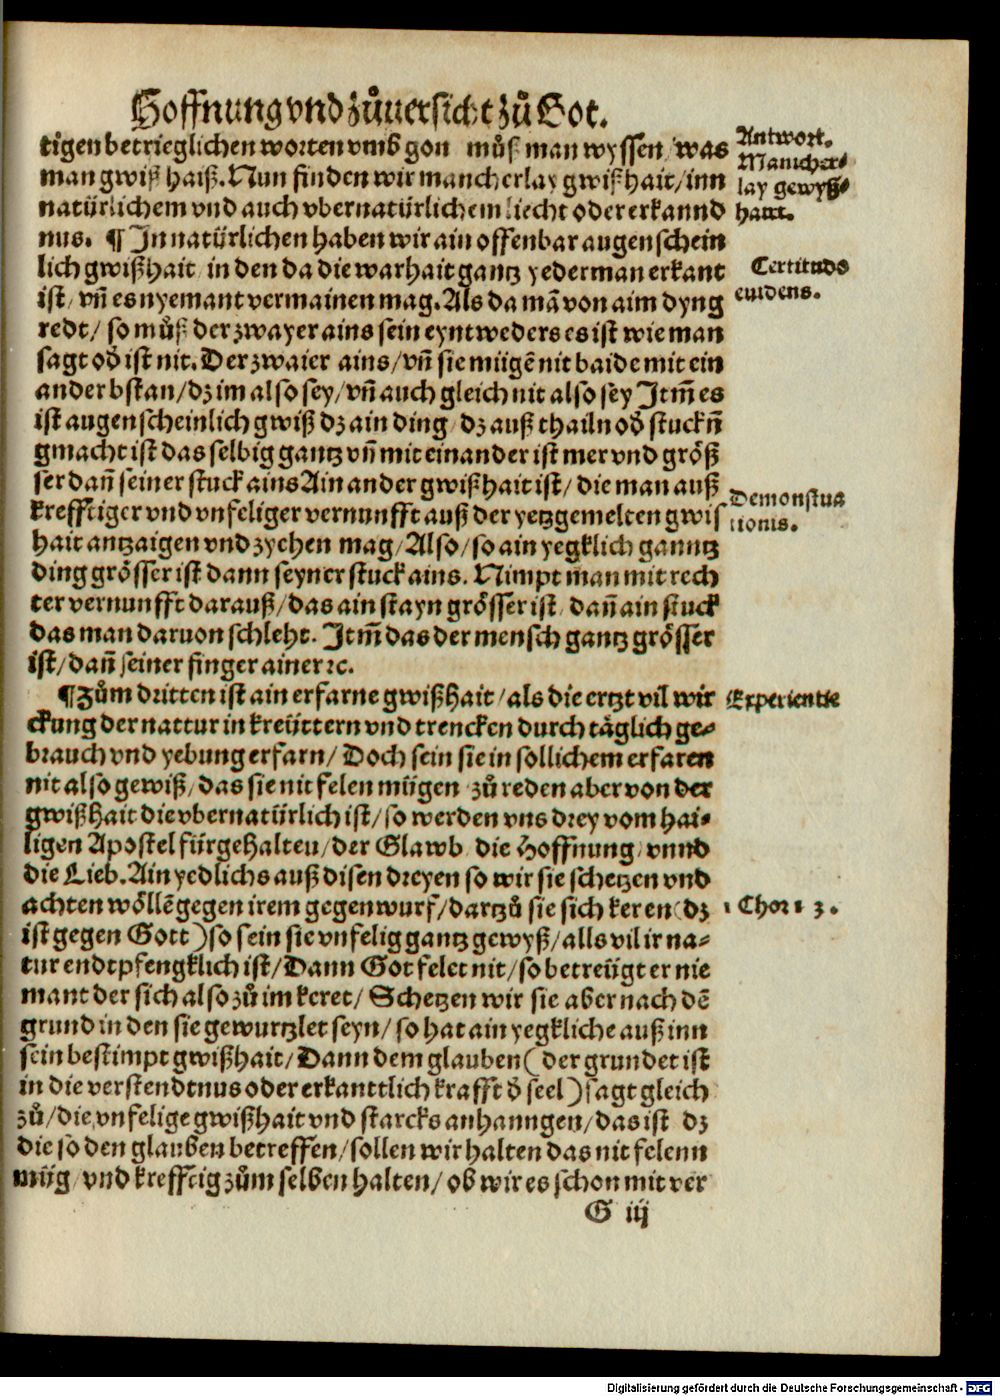 Hoffnung vnd zůuersicht zů Got.
tigen betrieglichen worten vmb gon můß man wyssen/was
man gwiß haiß. Nun finden wir mancherlay gwißhait/inn
natürlichem vnd auch vbernatürlichem liecht oder erkannd
nus. ¶ In natürlichen haben wir ain offenbar augenschein
lich gwißhait/in den da die warhait gantz yederman erkant
ist/vñ es nyemant vermainen mag. Als da mã von aim dyng
redt/so můß der zwayer ains sein eyntweders es ist wie man
sagt oď ist nit. Der zwaier ains/vñ sie mügẽ nit baide mit ein
ander bstan/dz im also sey/vñ auch gleich nit also sey Itm̃ es
ist augenscheinlich gwiß dz ain ding/dz auß thailn oď stuckñ
gmacht ist das selbig gantz vñ mit einander ist mer vnd größ
ser dañ seiner stuck ains Ain ander gwißhait ist/die man auß
krefftiger vnd vnfeliger vernunfft auß der yetzgemelten gwis
hait antzaigen vnd zychen mag/Also/so ain yegklich ganntz
ding grösser ist dann seyner stuck ains. Nimpt man mit rech
ter vernunfft darauß/das ain stayn grösser ist/dañ ain stuck
das man daruon schleht. Itm̃ das der mensch gantz grösser
ist/dañ seiner finger ainer ꝛc.
¶Zům dritten ist ain erfarne gwißhait/als die ertzt vil wir
ckung der nattur in kreüttern vnd trencken durch täglich ge⸗
brauch vnd yebung erfarn/Doch sein sie in sollichem erfaren
nit also gewiß/das sie nit felen mügen zů reden aber von der
gwißhait die vbernatürlich ist/so werden vns drey vom hai⸗
ligen Apostel fürgehalten/der Glawb die Hoffnung/vnnd
die Lieb. Ain yedlichs auß disen dreyen so wir sie schetzen vnd
achten wöllẽ gegen irem gegenwurf/dartzů sie sich keren (dz
ist gegen Gott) so sein sie vnfelig gantz gewyß/alls vil ir na⸗
tur endtpfengklich ist/Dann Got felet nit/so betreügt er nie
mant der sich also zů im keret/Schetzen wir sie aber nach dẽ
grund in den sie gewurtzlet seyn/so hat ain yegkliche auß inn
sein bestimpt gwißhait/Dann dem glauben (der grundet ist
in die verstendtnus oder erkanttlich krafft ď seel) sagt gleich
zů/die vnfelige gwißhait vnd starcks anhanngen/das ist dz
die so den glauben betreffen/sollen wir halten das nit felenn
müg/vnd krefftig zům selben halten/ob wir es schon mit ver
G iij
Antwort.
Mancher⸗
lay gewyß⸗
hait.
Certitudo
euidens.
Demonstra
tionis.
Experientie
1 Chor 1 3.
Digitalisierung gefördert durch die Deutsche Forschungsgemeinschaft - DFG